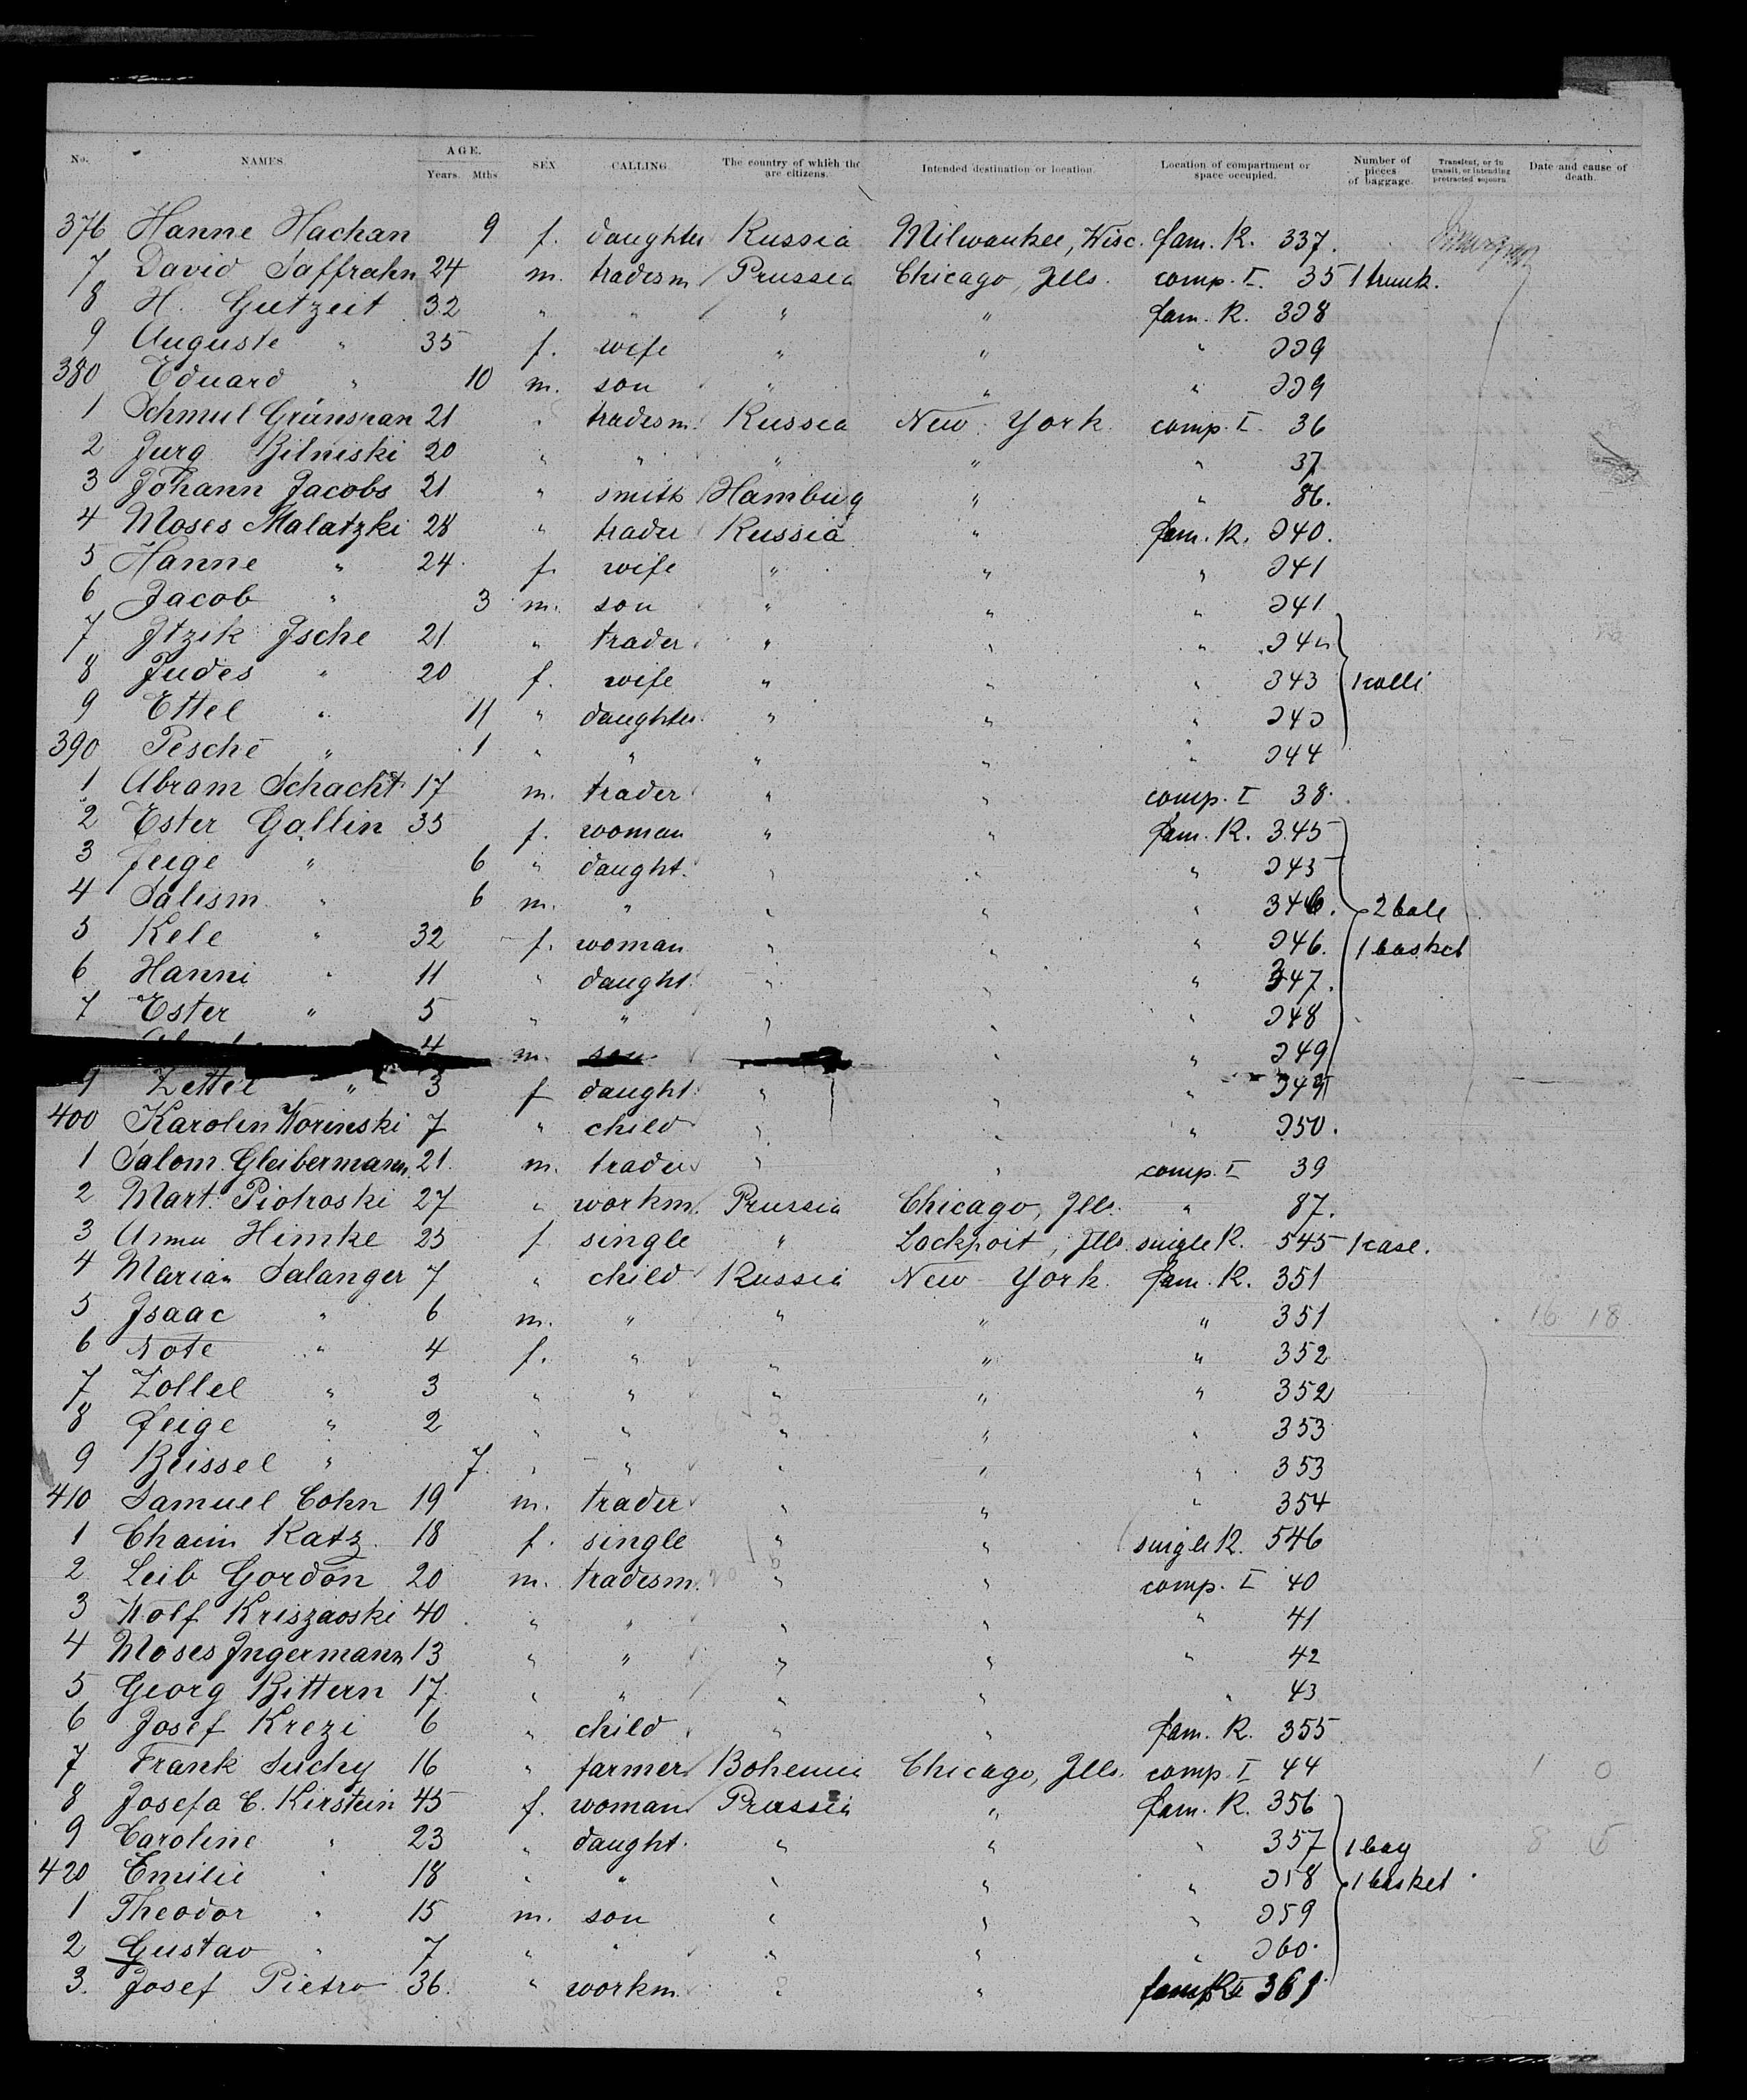 No. NAMES. AGE. Years. Mths. SEX CALLING. The country of which the are citizens. Intended destination or location. Location of compartment or space occupied. Number of pieces of baggage. Transient, or in transit, or intending protracted sojourn. Date and cause of death.
376 Hanne Hachan 9 f. daughter Russia Milwaukee, Wisc. fam. R. 337.
7 David Saffrahn 24 m. tradesm Prussia Chicago, Ills. comp. I. 35 1 trunk.
8 H. Gutzeit 32 " " " " fam. R. 338
9 Auguste " 35 f. wife " " " 339
380 Eduard " 10 m. son " " " 339
1 Schmul Grünspan 21 " tradesm. Russia New York comp. I 36
2 Jurg Bilniski 20 " " " " " 37
3 Johann Jacobs 21 " smith Hamburg " " 86.
4 Moses Malatzki 28 " trader Russia " fam. R. 340.
5 Hanne " 24 f. wife " " " 341
6 Jacob " 3 m. son " " " 341
7 Itzik Ische 21 " trader " " " 342
8 Judes " 20 f. wife " " " 343 1 colli
9 Ettel " 11 " daughter " " " 343
390 Pesche " 1 " " " " " 344
1 Abram Schacht 17 m. trader " " comp. I 38.
2 Ester Gallin 35 f. woman " " fam. R. 345
3 Feige " 6 " daught. " " " 345
4 Salism " 6 m. " " " " 346. 2 bale
5 Kele " 32 f. woman " " " 346. 1 basket
6 Hanni " 11 " daught. " " " 347.
7 Ester " 5 " " " " " 348
4 m. son " " 349
9 Zettel " 3 f daught " " " 349
400 Karolin Worinski 7 " child " " " 350.
1 Salom. Gleibermann 21. m. trader " " comp. I 39
2 Mart. Piotroski 27 " workm. Prussia Chicago, Ills. " 87.
3 Anna Himke 23 f single " Lockport, Ills. single R. 545 1 case.
4 Marian Salanger 7 " child Russia New York. fam. R. 351
5 Isaac " 6 m. " " " " 351 16 18
6 Note " 4 f. " " " " 352
7 Zollel " 3 " " " " " 352
8 Feige " 2 " " " " " 353
9 Beissel " 7. " " " " " 353
410 Samuel Cohn 19 m. trader " " " 354
1 Chaim Katz 18 f. single " " single R. 546
2 Leib Gordon 20 m. tradesm. " " comp. I 40
3 Wolf Kriszaoski 40 " " " " " 41
4 Moses Ingermann 13 " " " " " 42
5 Georg Bittern 17 " " " " " 43
6 Josef Krezi 6 " child " " fam. R. 355
7 Frank Suchy 16 " farmer Bohemia Chicago, Ills. comp. I 44 1 0
8 Josefa C. Kirstein 45 f. woman Prussia " fam. R. 356
9 Caroline " 23 " daught. " " " 357 1 bag 8 5
420 Emilie " 18 " " " " " 358 1 basket
1 Theodor " 15 m. son " " " 359
2 Gustav " 7 " " " " " 360.
3. Josef Pietro 36. " workm. " " 361